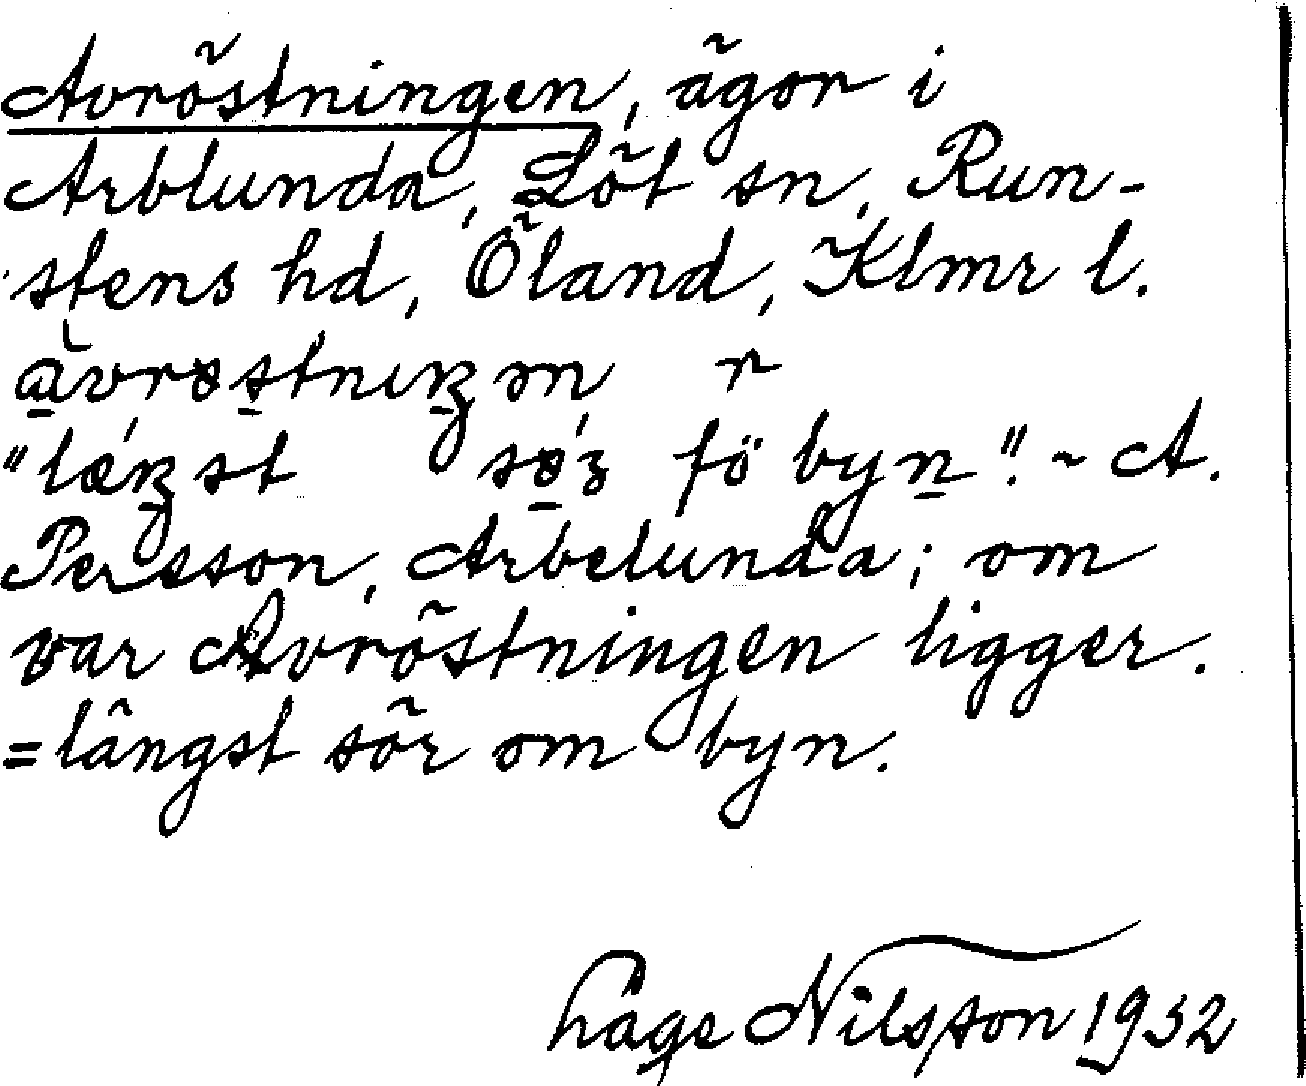 Avröstningen, ägor i
Arblunda, Löt sn, Run-
stens hd, Öland, Klmr l.
r
fö byn". - A.
Persson, Arbelunda; om
var Avröstningen ligger.
= längst sör om byn.
Nilsson 1932